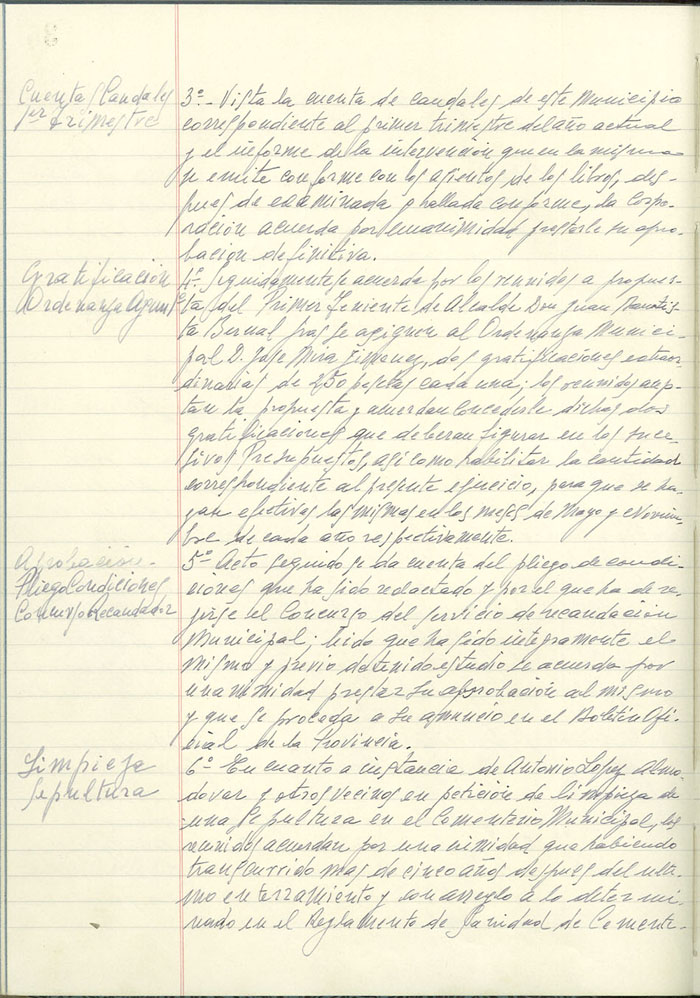 Cuentas Caudales
1er trimestre
3º.- Vista la cuenta de caudales de este Municipio
correspondiente al primer trimestre del año actual
y el informe de la intervención que en la misma
se emite conforme con los asientos de los libros, des-
pues de examinada y hallada conforme, la Corpo-
ración acuerda por unanimidad prestarle su apro-
bacion definitiva.
Gratificación
Ordenanza Ayunt
4º.- Seguidamente se acuerda por los reunidos a propues-
ta del Primer Teniente de Alcalde Don Juan Bautis-
ta Bernal se asignen al Ordenanza Munici-
pal D. Jose Mira Jimenez, dos gratificaciones extraor-
dinarias de 250 pesetas cada una; los reunidos acep-
tan la propuesta y acuerdan concederle dichas dos
gratificaciones que deberan figurar en los suce-
sivos Presupuestos, asi como habilitar la cantidad
correspondiente al presente ejercicio, para que se ha-
gan efectivas las mismas en los meses de Mayo y Noviem-
bre de cada año respectivamente.
Aprobación-
Pliego Condiciones
Concurso Recaudador
5º Acto seguido se da cuenta del pliego de condi-
ciones que ha sido redactado y por el que ha de re-
girse el Concurso del servicio de recaudación
Municipal; leido que ha sido integramente el
mismo y previo detenido estudio se acuerda por
unanimidad prestar su aprobación al mismo
y que se proceda a su anuncio en el Boletin Ofi-
cial de la Provincia.
Limpieza
Sepultura
6º En cuanto a instancia de Antonio Lopez Almo-
dovar y otros vecinos en petición de limpieza de
una sepultura en el Cementerio Municipal, los
reunidos acuerdan por unanimidad que habiendo
transcurrido mas de cinco años despues del ulti-
mo enterramiento y con arreglo a lo determi-
nado en el Reglamento de Sanidad de Cemente-